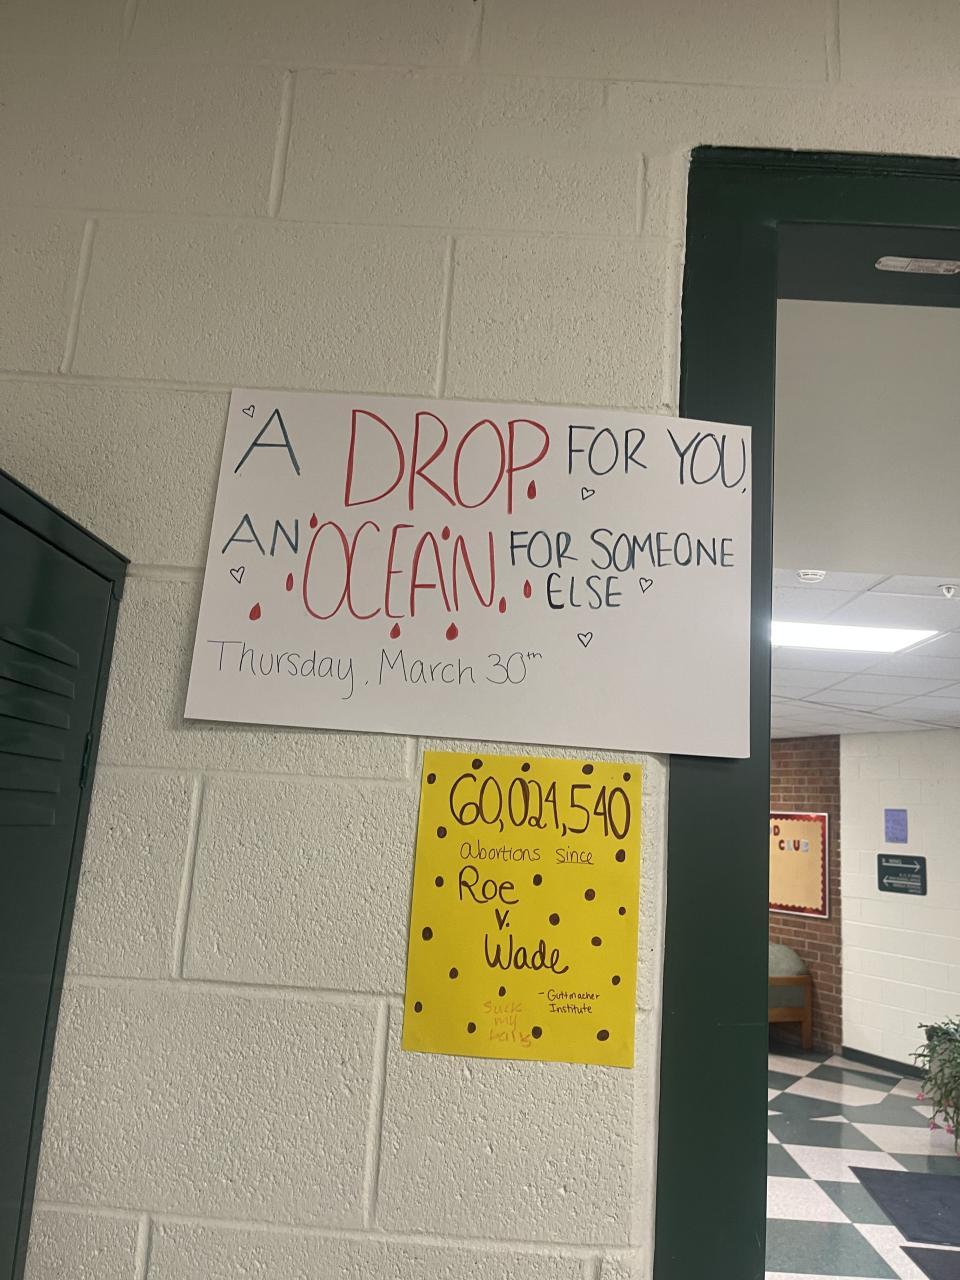 A DROP FOR YOU,
AN OCEAN FOR SOMEONE
ELSE
Thursday, March 30th
60,024,540
abortions since
Roe
v.
Wade
- Guttmacher
Institute
Suck
my
balls
D
CLUB